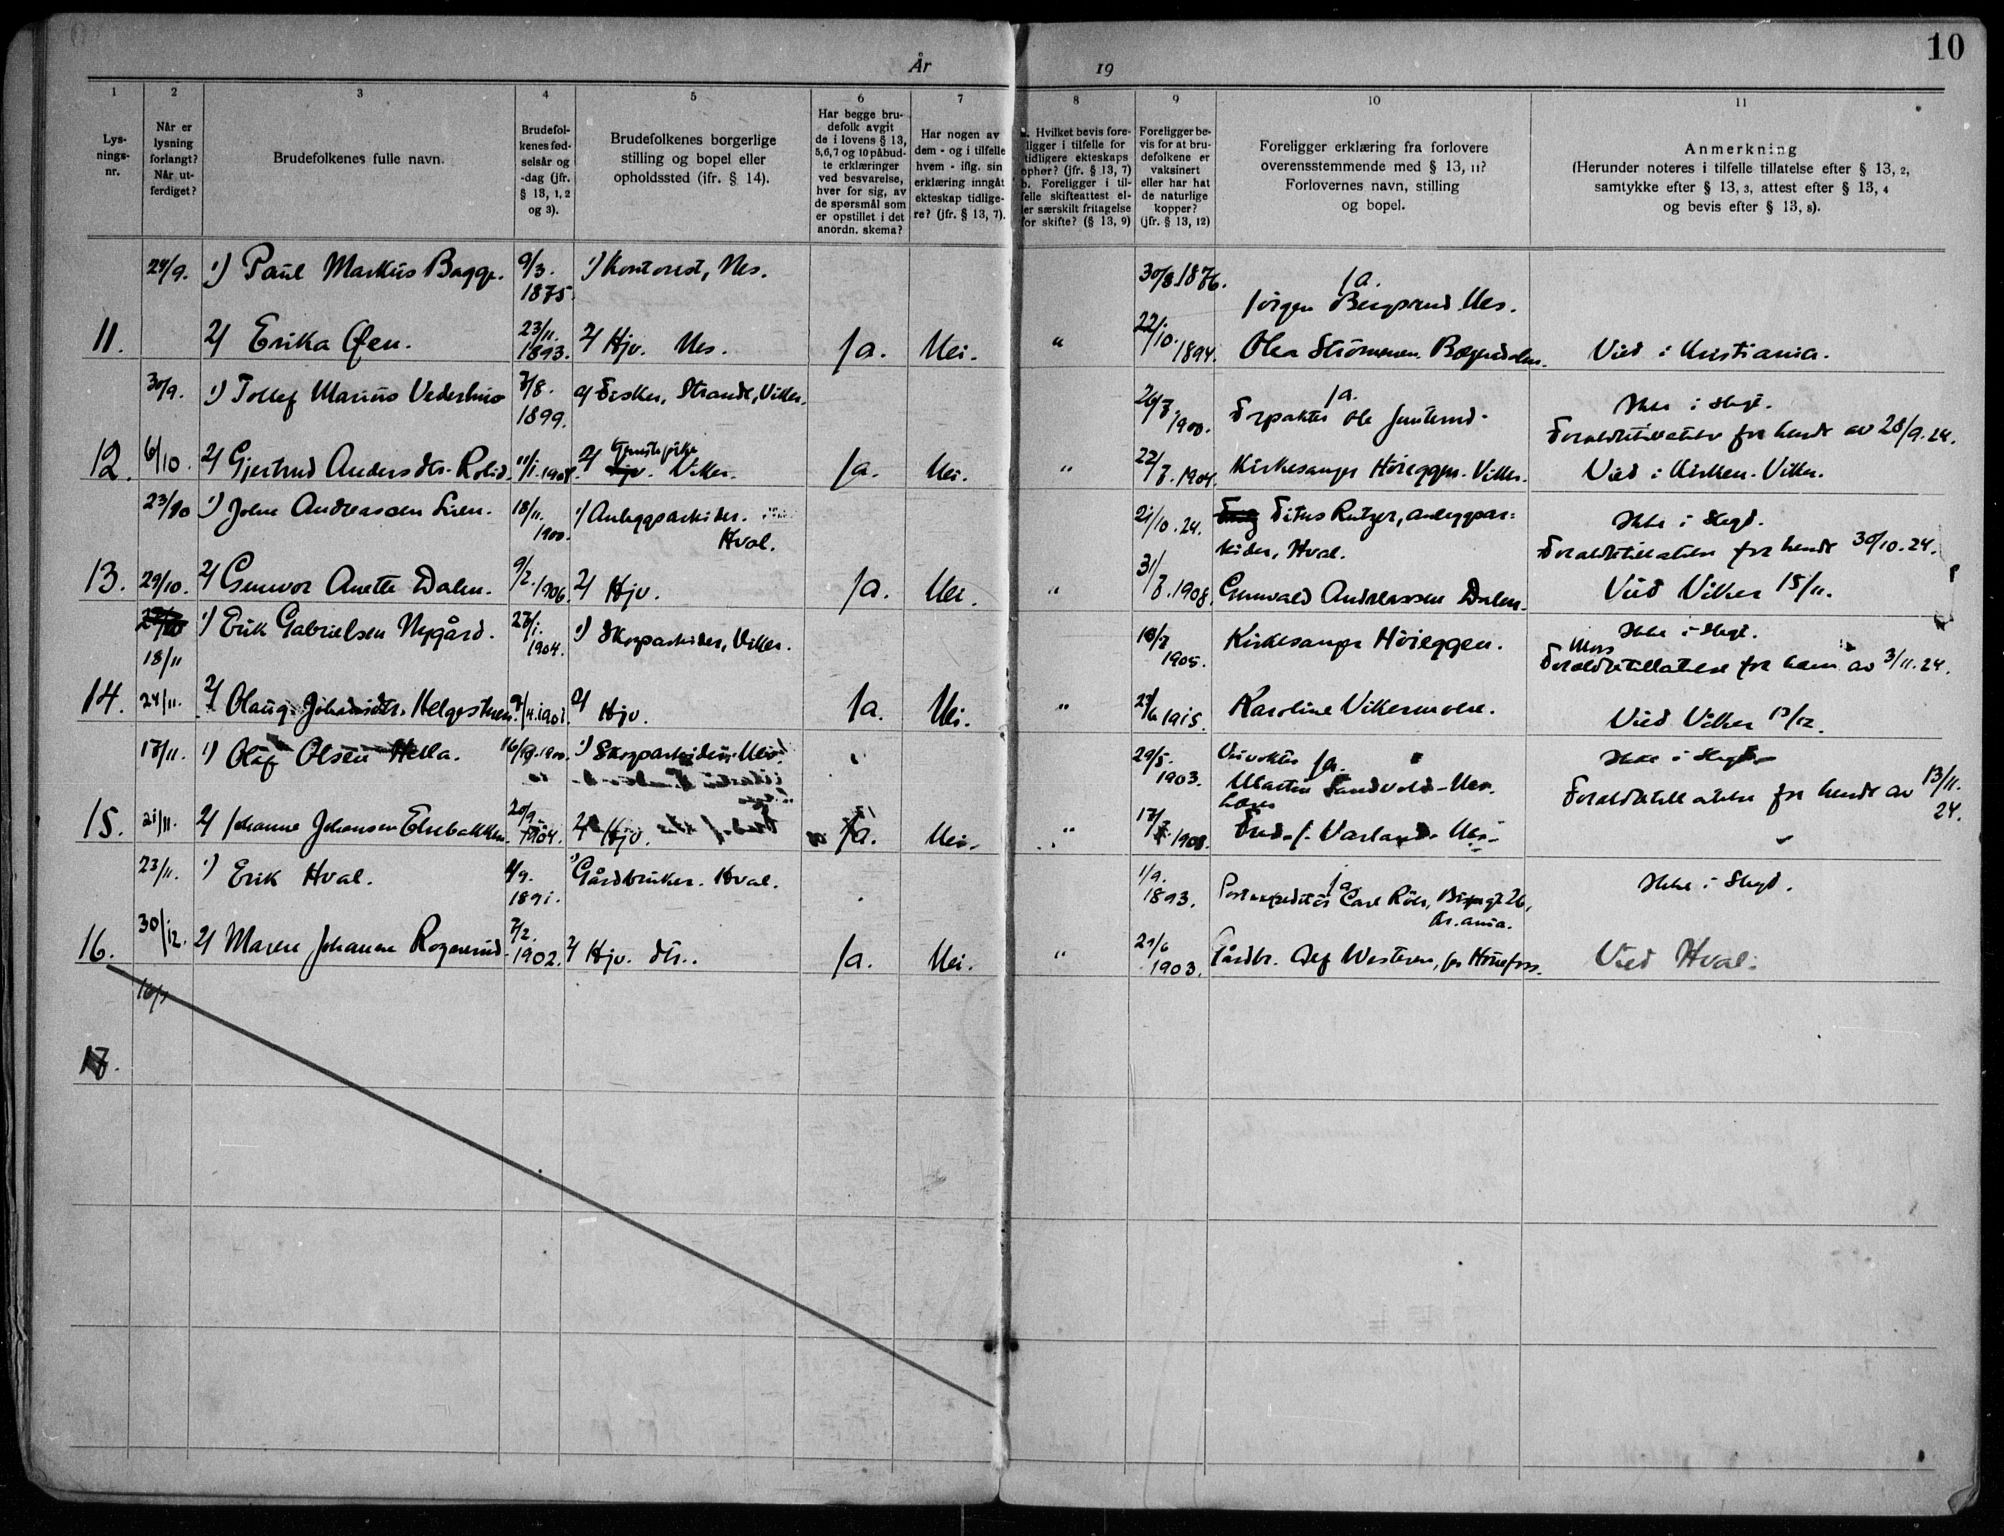 10
År 19
1 2 3 4 5 6 7 8 9 10 11
Lys-
nings-
nr.
Når er
lysning
forlangt?
Når ut-
ferdiget?
Brudefolkenes fulle navn.
Brudefol-
kenes fød-
selsår og
-dag (jfr.
§ 13, 1, 2
og 3).
Brudefolkenes borgerlige
stilling og bopel eller
opholdssted (ifr. § 14).
Har begge bru-
defolk avgit
de i lovens § 13,
5,6,7 og 10 påbud-
te erklæringer
ved besvarelse,
hver for sig, av
de spørsmål som
er opstillet i det
anordn. skema?
Har nogen av
dem - og i tilfelle
hvem - iflg. sin
erklæring inngåt
ekteskap tidlige-
re? (jfr. § 13, 7).
a. Hvilket bevis fore-
ligger i tilfelle for
tidligere ekteskaps
ophør? (jfr. § 13, 7)
b. Foreligger i til-
felle skifteattest el-
ler særskilt fritagelse
for skifte? (§ 13, 9)
Foreligger be-
vis for at bru-
defolkene er
vaksinert
eller har hat
de naturlige
kopper?
(jfr. § 13, 12)
Foreligger erklæring fra forlovere
overensstemmende med § 13, 11?
Forlovernes navn, stilling
og bopel.
Anmerkning
(Herunder noteres i tilfelle tillatelse efter § 13, 2,
samtykke efter § 13, 3, attest efter § 13, 4
og bevis efter § 13, 8).
24/9. 1) Paul Markus Bagge. 9/3. 1875. 1) Kontorist, Nes. 30/8 1876. Ja.
Jörgen Bergsrud Nes.
11. 2) Erika Øen. 23/11. 1893. 2) Hjv. Nes. Ja. Nei. " 22/10. 1894. Ola Strömmen. Viid i Kristiania.
30/9. 1) Tollef Marius Vederhus 7/8. 1899. Fisker, Strande, Viker. 26/7. 1900. Ja.
Forpakter Ole
Ikke i slegt.
Foreldretillatelse for hende av 28/9. 24.
12. 6/10. 2) Gjertrud Andersdtr. 11/1. 2) Tjenestepike Viker. Ja. Nei. " 22/7. 1904. Kirkesanger Höieggen. Viker. Viid i Kirken. Viker.
23/10 1) John Andreassen 18/11. 1900. 1) Anleggsarbeider. Hval. 21/10. 24. Titus Rutger, anleggsar=
beider, Hval.
Ikke i slegt.
Foreldretillatelse for hende 30/10. 24.
13. 29/10. 2) Gunvor Anette Dalen. 9/2. 1906. 2) Hjv. Ja. Nei. " 31/7. 1908. Gunvald Andreassen Dalen. Viid Viker 15/11.
18/11 1) Erik Gabrielsen Nygård. 1904. 1) Skogsarbeider, Viker. 1905. Kirkesanger Höieggen. Ikke i slegt.
Mors
Foreldretillatelse for ham av 3/11. 24.
14. 24/11. 2) Olaug Johansdtr. Helgesteen. 2) Hjv. Ja. Nei. " 1915. Karoline Vikermoen. Viid Viker 13/12.
17/11. 1) Olaf Olsen Hella. 1) Skogsarbeider 29/5. 1903. Ja.
Martin Sandvold Nes. Ikke i slegt.
Foreldretillatelse for hende av 13/11. 24.
15. 21/11. 2) Johanne Johansen Elsebakken. 20/9. 1904. 2) Hjv. Ja. Nei. " 1908. Fred. J. Varland
23/11. 1) Erik Hval. 1891. 1) Gårdbruker. Hval. 1/9. 1893. Ja.
Postexpeditör Carl
Kr.ania.
Ikke i slegt.
16. 30/12. 2) Maren Johanne Rognerud. 7/2. 1902. 2) Hjv. dtr. Ja. Nei. " 21/6 1903. Gårdbr. Alf Westeren, pr Hönefoss. Viid Hval.
17.